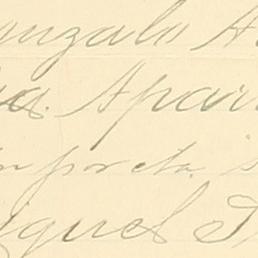 onzalo A
a. Apari
n por eta s
iguel F